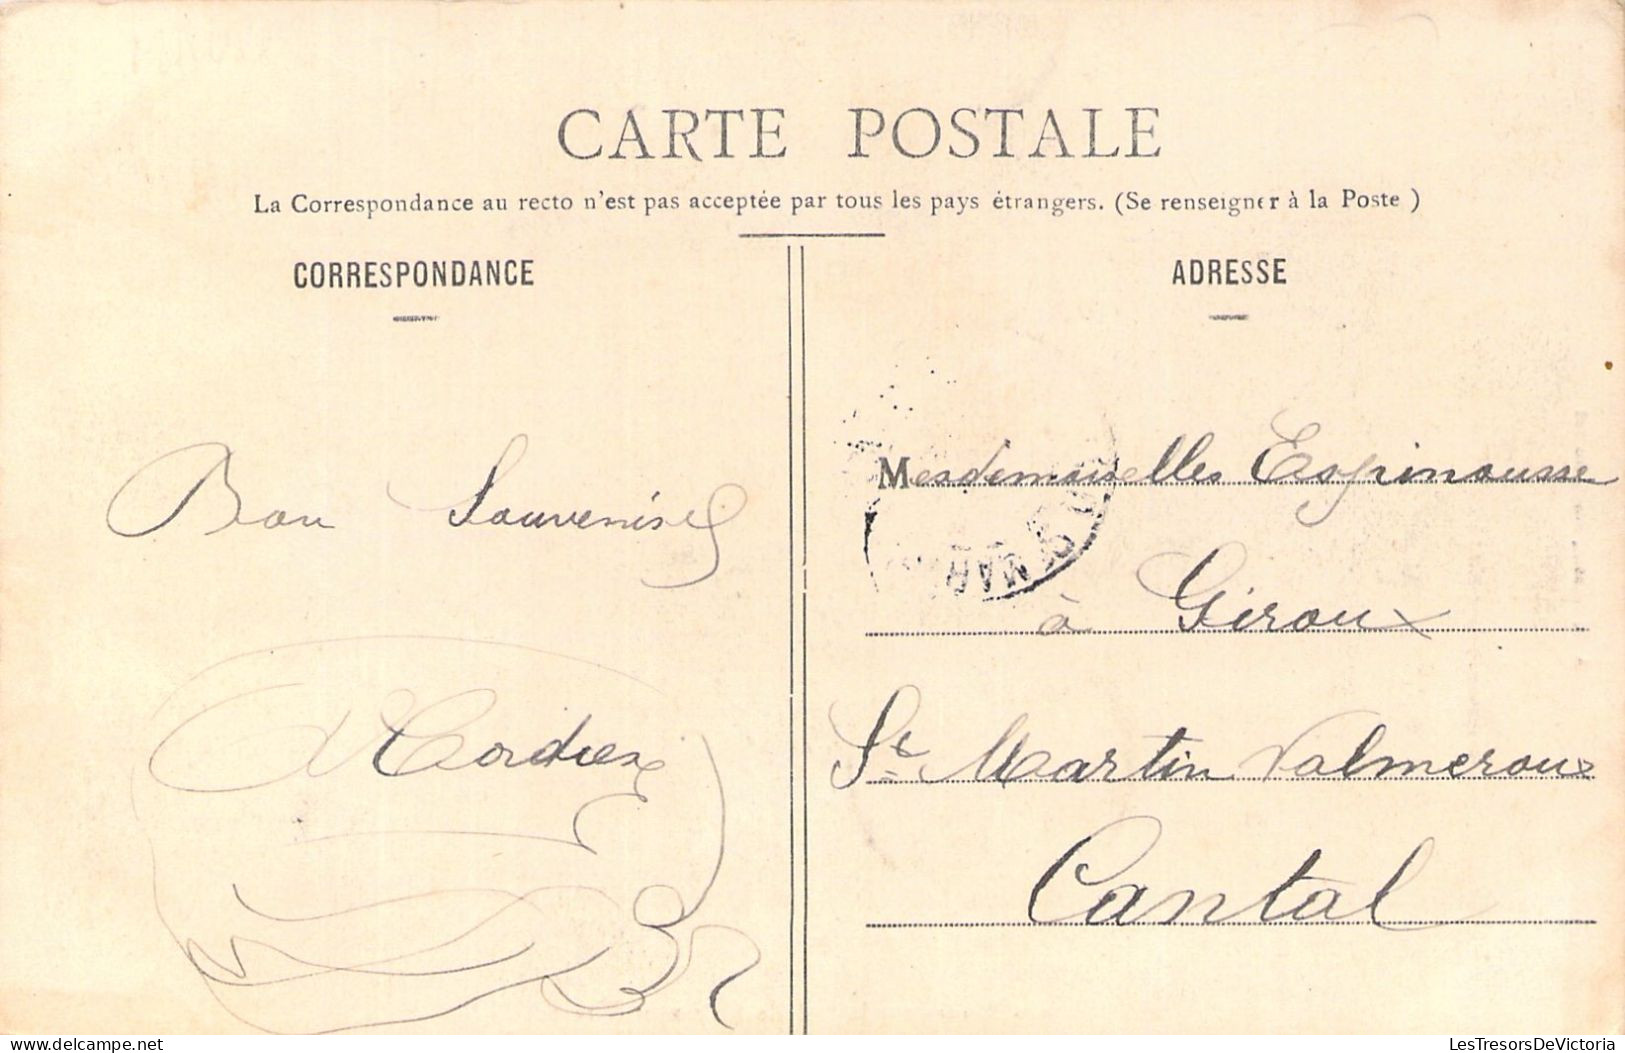 CARTE POSTALE
La Correspondance au recto n'est pas acceptée par tous les pays étrangers. (Se renseigner à la Poste )
CORRESPONDANCE
Bon Souvenir
ADRESSE
Mesdemoiselles Espinousse
à Giroux
St Martin Valmeroux
Cantal
LesTresorsDeVictoria
delcampe.net